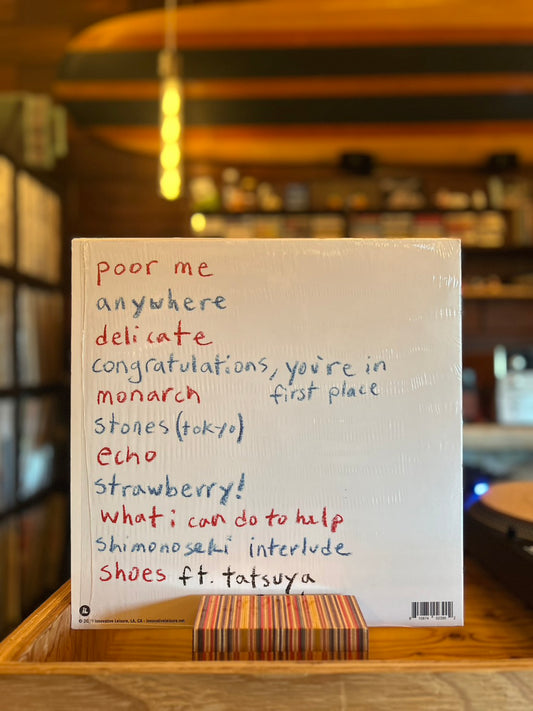 poor me
anywhere
delicate
congratulations, you're in
first place
monarch
stones (tokyo)
echo
strawberry!
what i can do to help
shimonoseki interlude
shoes ft. tatsuya
IL
Innovative Leisure, LA, CA - innovativeleisure.net